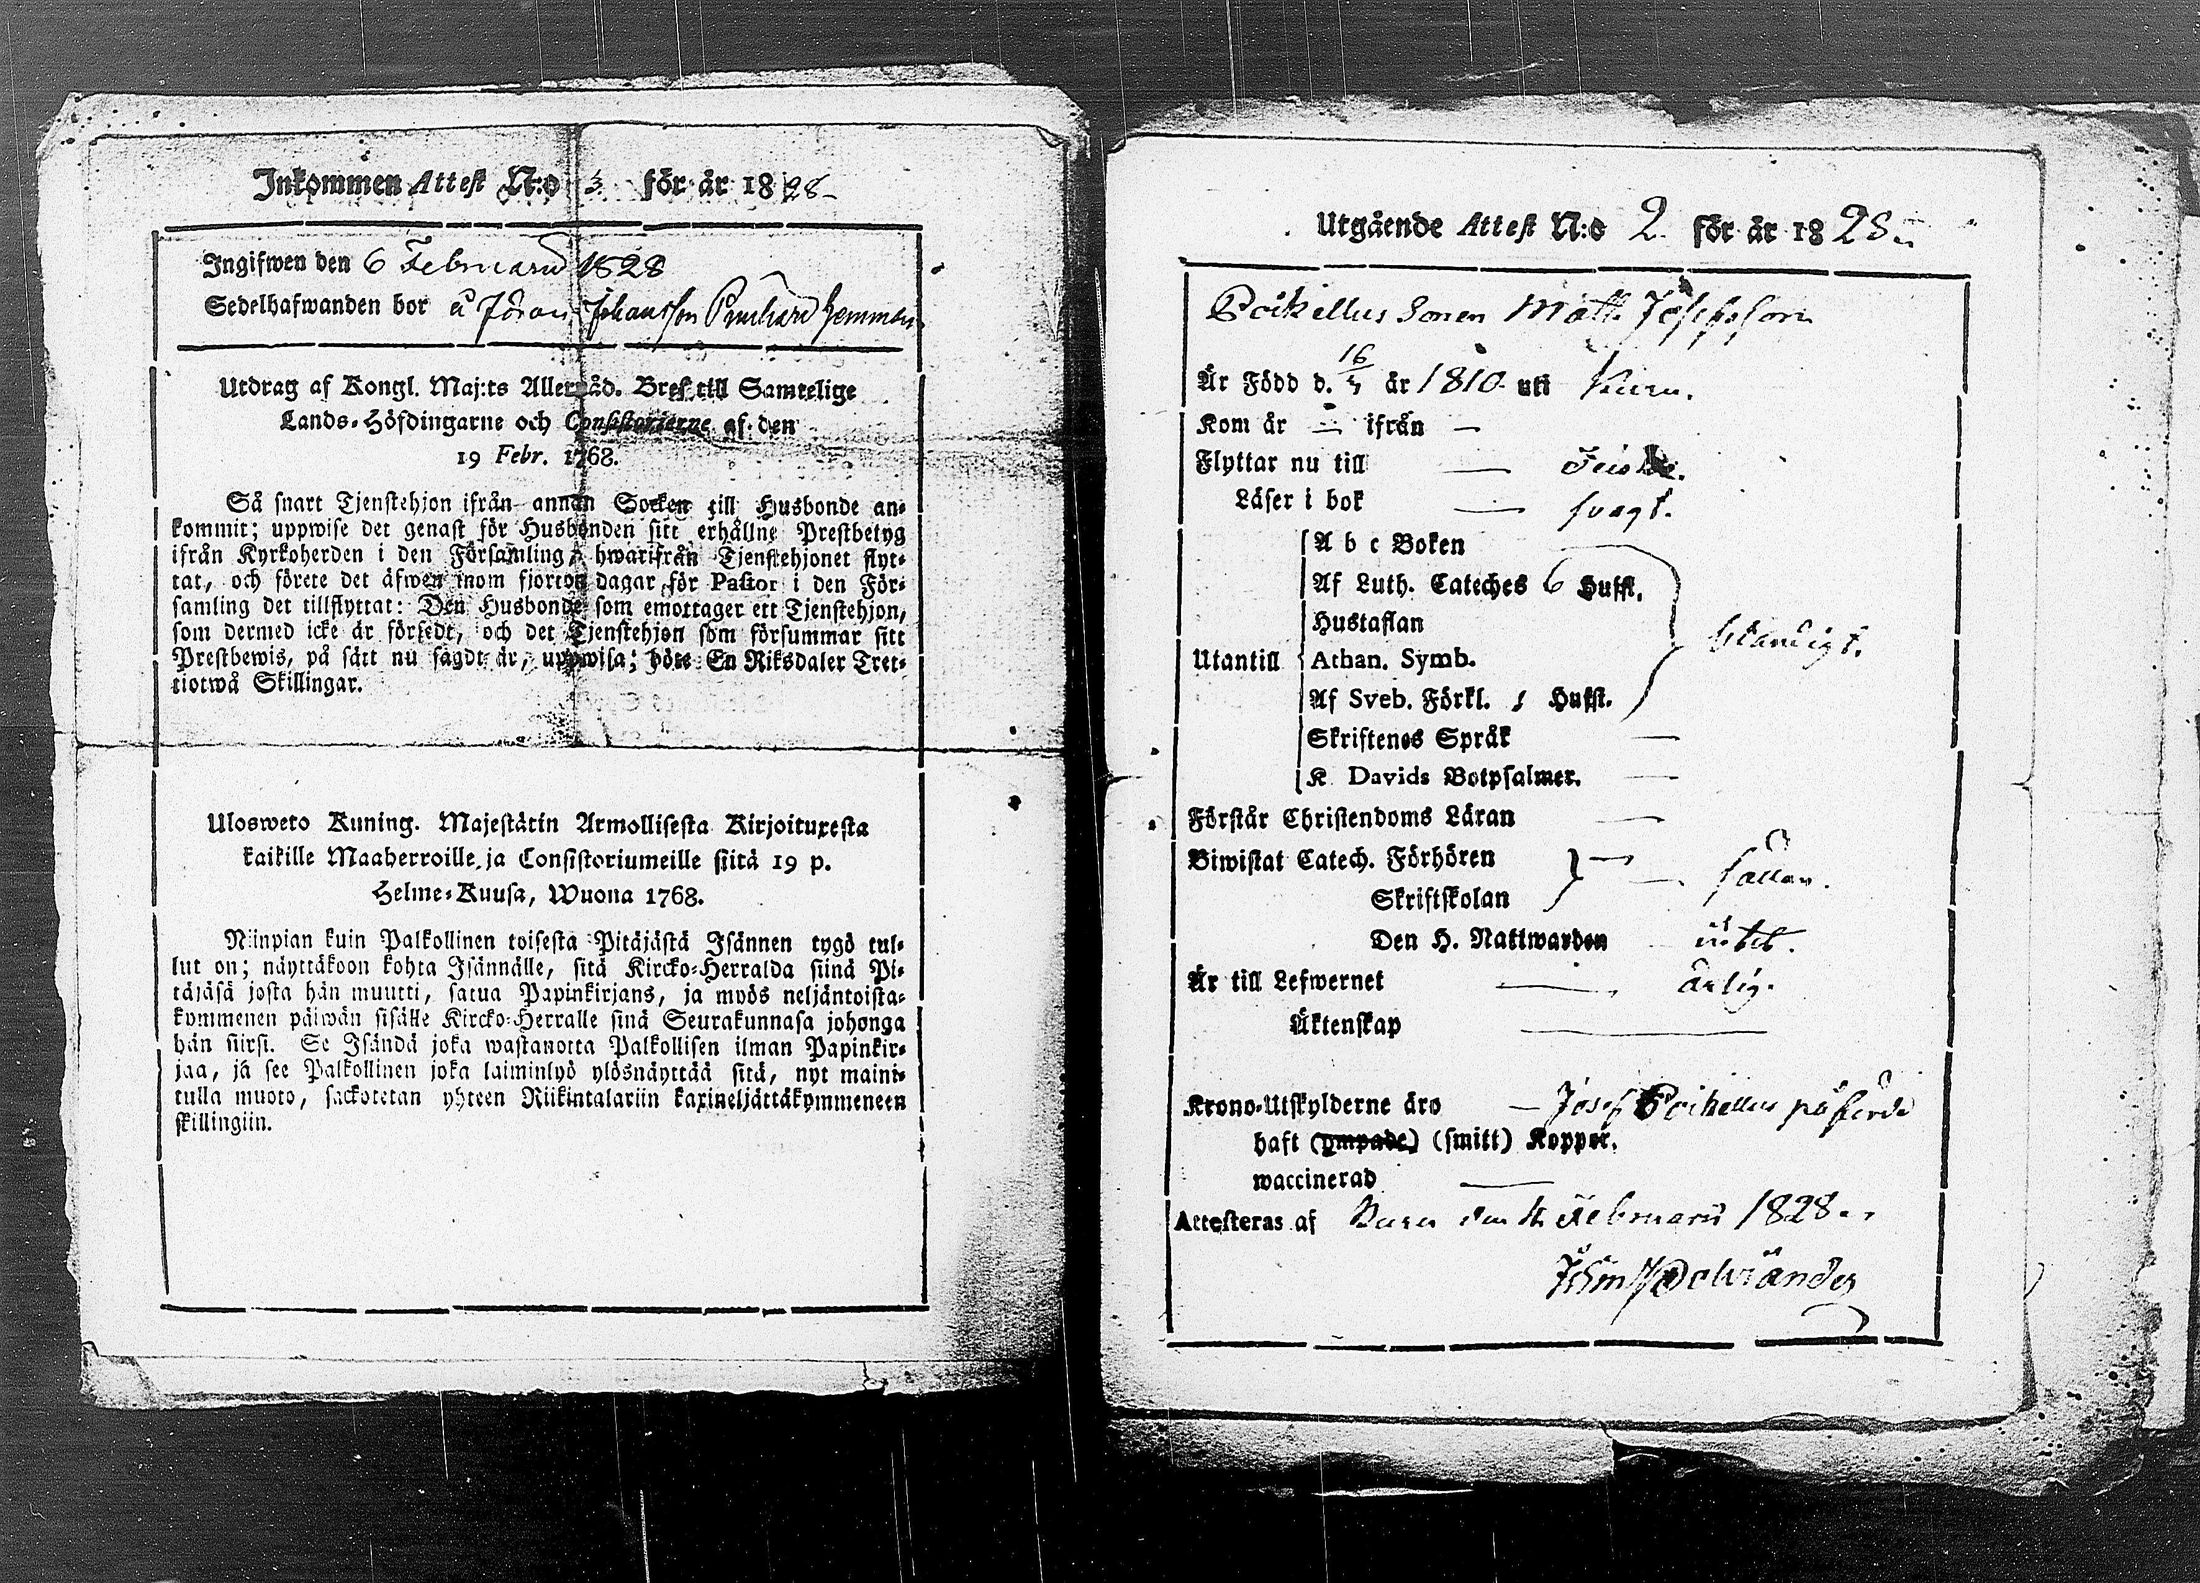 Inkommen Attest N:o 3. för år 1828
Ingifwen den 6 Februarii 1828
Sedelhafwanden bor å Jöran Johansson hemman
Utdrag af Kongl. Maj:ts Allernåd. Bref till Samtelige
Lands-Höfdingarne och Consistorierne af den
19 Febr. 1768.
Så snart Tjenstehjon ifrån annan Socken till Husbonde an-
kommit; uppwise det genast för Husbonden sitt erhållne Prestbetyg
ifrån Kyrkoherden i den Församling, hwarifrån Tjenstehjonet flyt-
tat, och förete det äfwen inom fjorton dagar för Pastor i den För-
samling det tillflyttat: Den Husbonde som emottager ett Tjenstehjon,
som dermed icke är försedt, och det Tjenstehjon som försummar sitt
Prestbewis, på sätt nu sagdt är, uppwisa; böte En Riksdaler Tret-
tiotwå Skillingar.
Ulosweto Kuning. Majestätin Armollisesta Kirjoituxesta
kaikille Maaherroille ja Consistoriumeille siitä 19 p.
Helme-Kuusa, Wuona 1768.
Niinpian kuin Palkollinen toisesta Pitäjästä Isännen tygö tul-
lut on; näyttäkoon kohta Isännälle, sitä Kircko-Herralda siinä Pi-
täjäsä josta hän muutti, satua Papinkirjans, ja myös neljäntoista-
kymmenen päiwän sisälle Kircko-Herralle siinä Seurakunnasa johonga
hän siirsi. Se Isändä joka wastanotta Palkollisen ilman Papinkir-
jaa, jä see Palkollinen joka laiminlyö ylösnäyttää sitä, nyt maini-
tulla muoto, sackotetan yhteen Riikintalariin kaxineljättäkymmeneen
skillingiin.
Utgående Attest N:o 2. för år 1828
Poikellus Sonen Matt. Josephsson
Är Född d. 16/ år 1810 uti
Kom år — ifrån —
Flyttar nu till —
Läser i bok — svagt.
A b c Boken
Af Luth. Cateches 6 Hufst.
Hustaflan
Utantill Athan. Symb.
Af Sveb. Förkl. 1 Hufst.
Skriftenes Språk —
K. Davids Botpsalmer. —
Förstår Christendoms Läran —
Biwistat Catech. Förhören — sällan.
Skriftskolan
Den H. Nattwarden intet.
Är till Lefwernet — ärlig.
Äktenskap —
Krono-Utskylderne äro — Josef Poikellus påförde
haft (ympade) (smitt) Koppor.
waccinerad —
Attesteras af den Februarii 1828